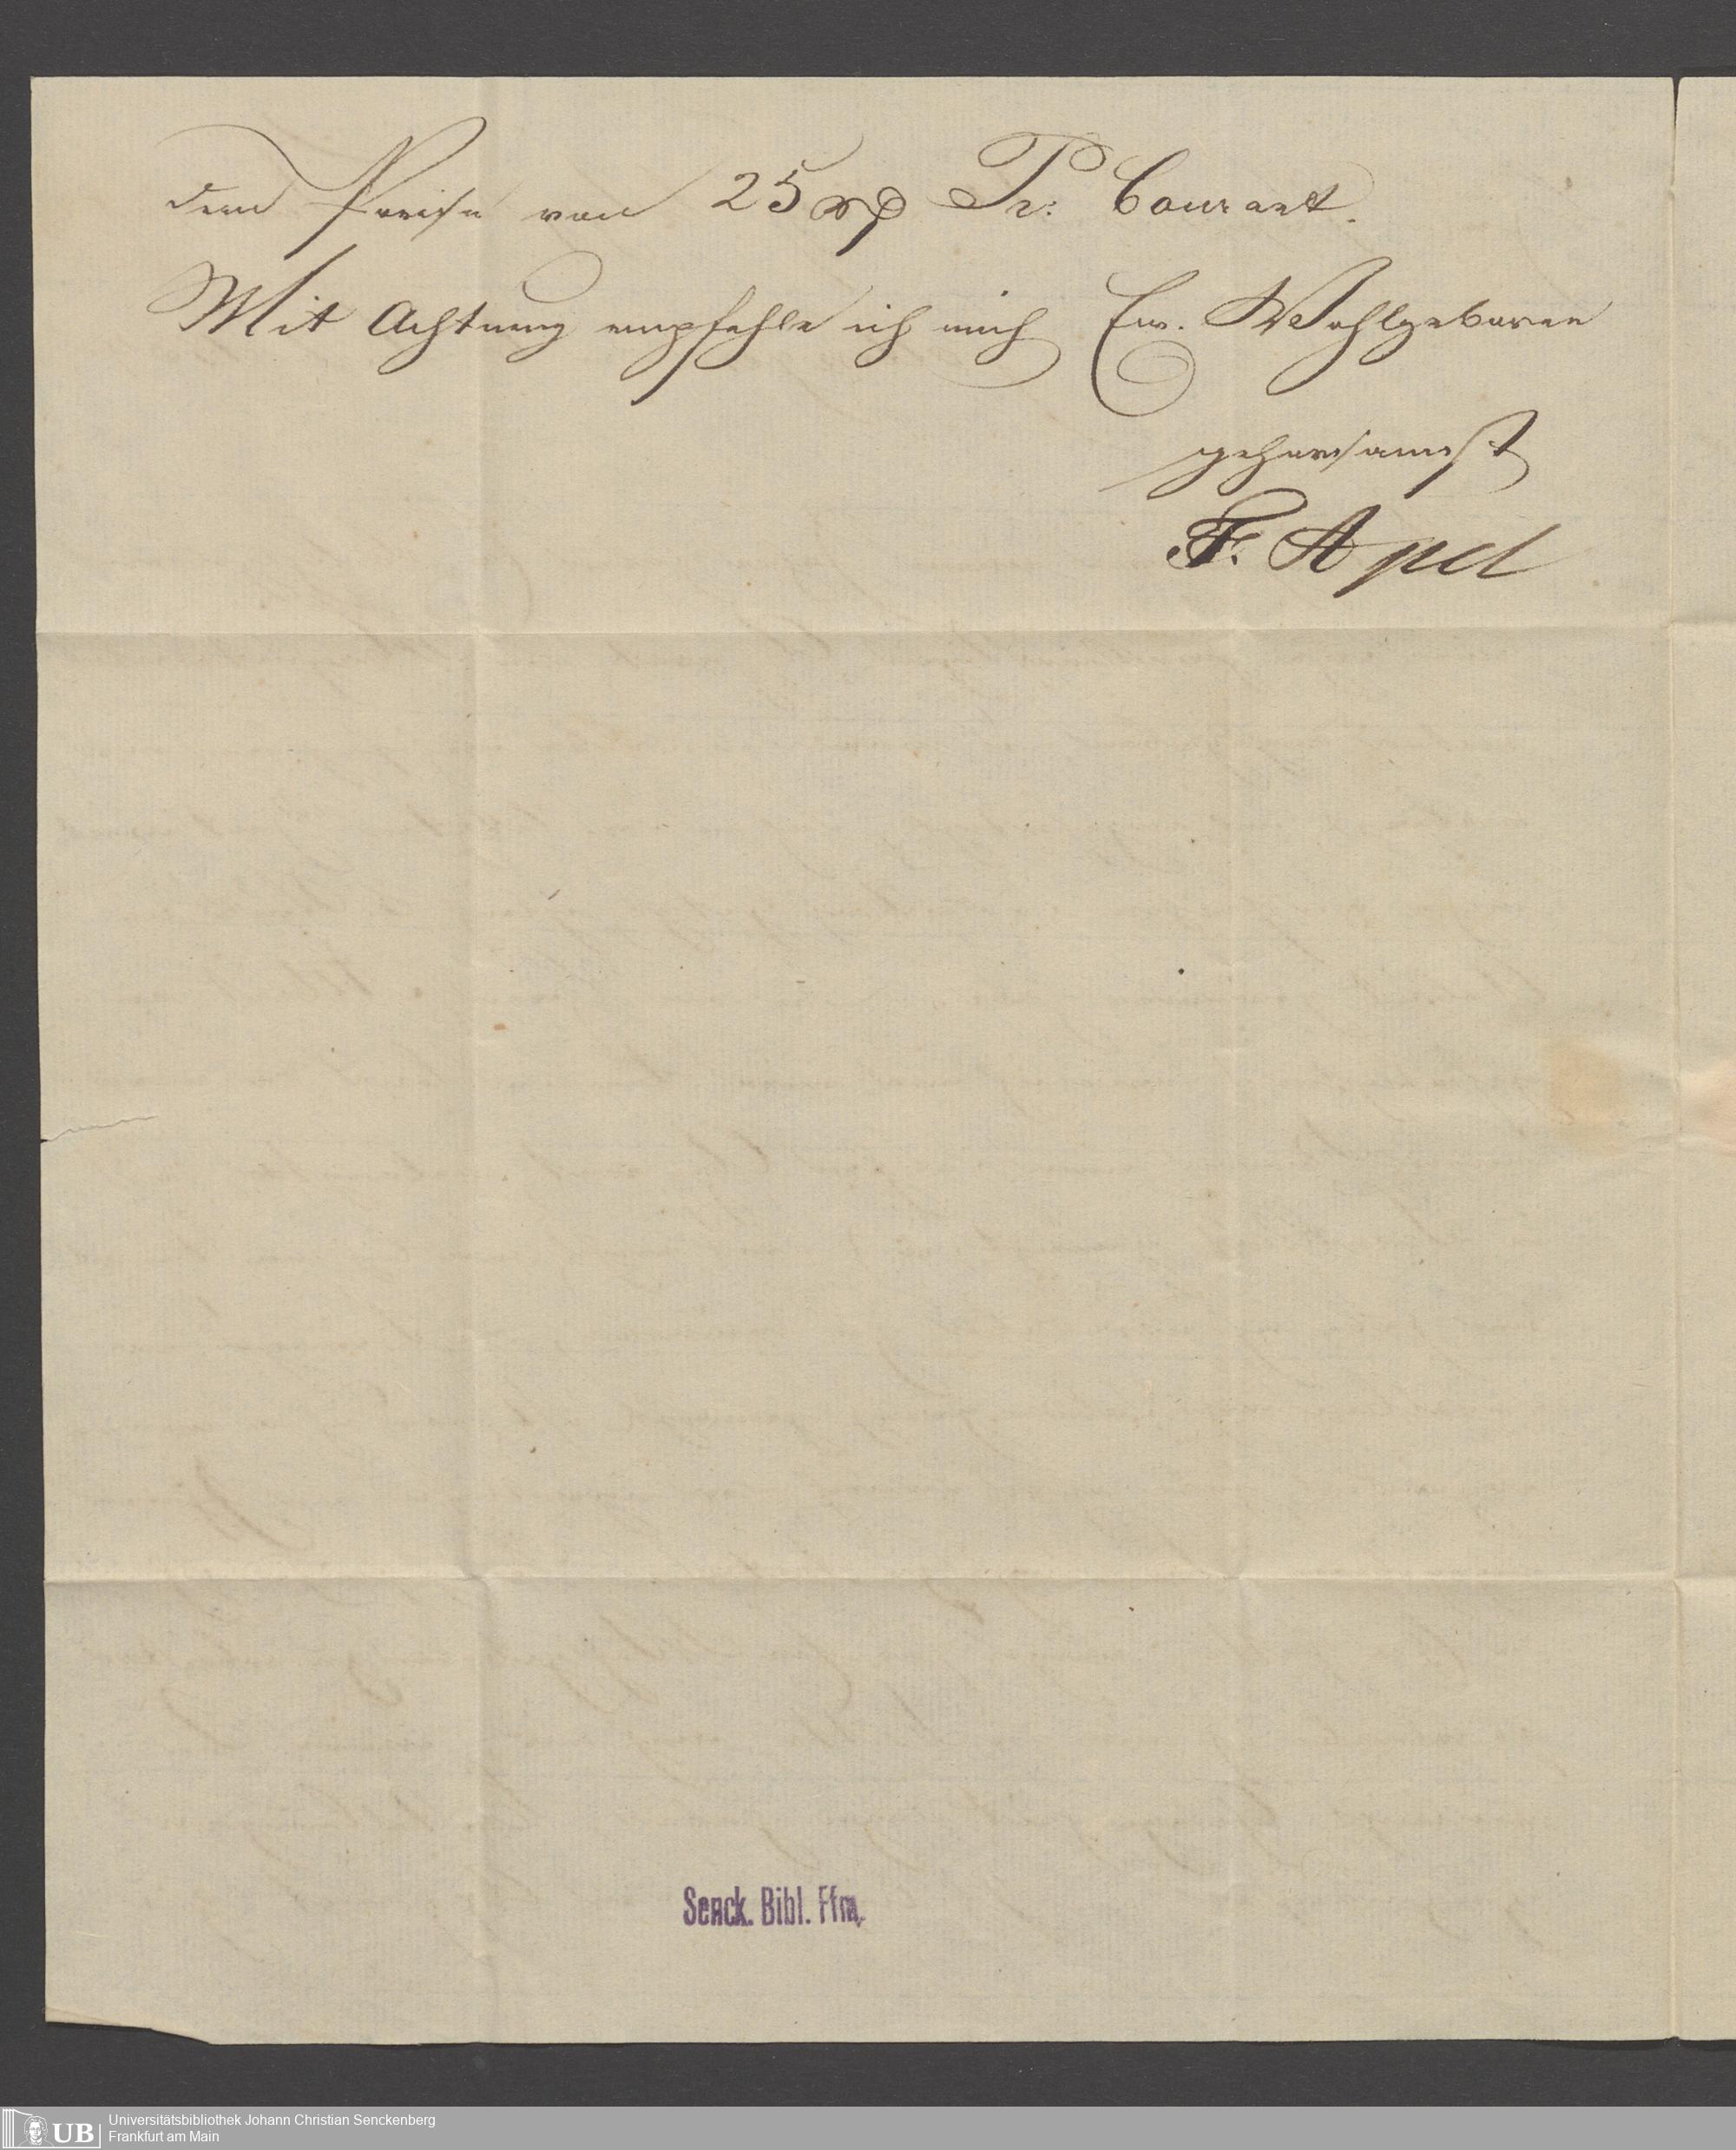 dem Preise von 25 rℓ Pr: Courant.
Mit Achtung empfehle ich mich Ew. Wohlgeboren
gehorsamst
F. Apel
Senck. Bibl. Ffm.
UB
Universitätsbibliothek Johann Christian Senckenberg
Frankfurt am Main